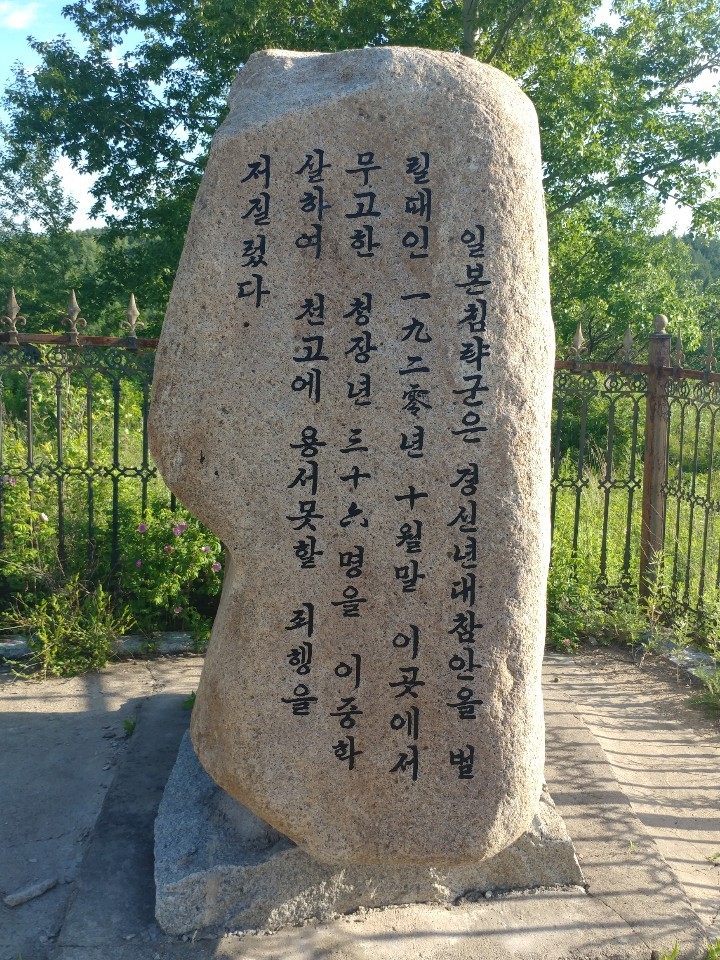 일본침략군은 경신년대참안을 벌
릴때인 一九二零년 十월말 이곳에서
무고한 청장년 三十六명을 이중학
살하여 천고에 용서못할 죄행을
저질렀다.